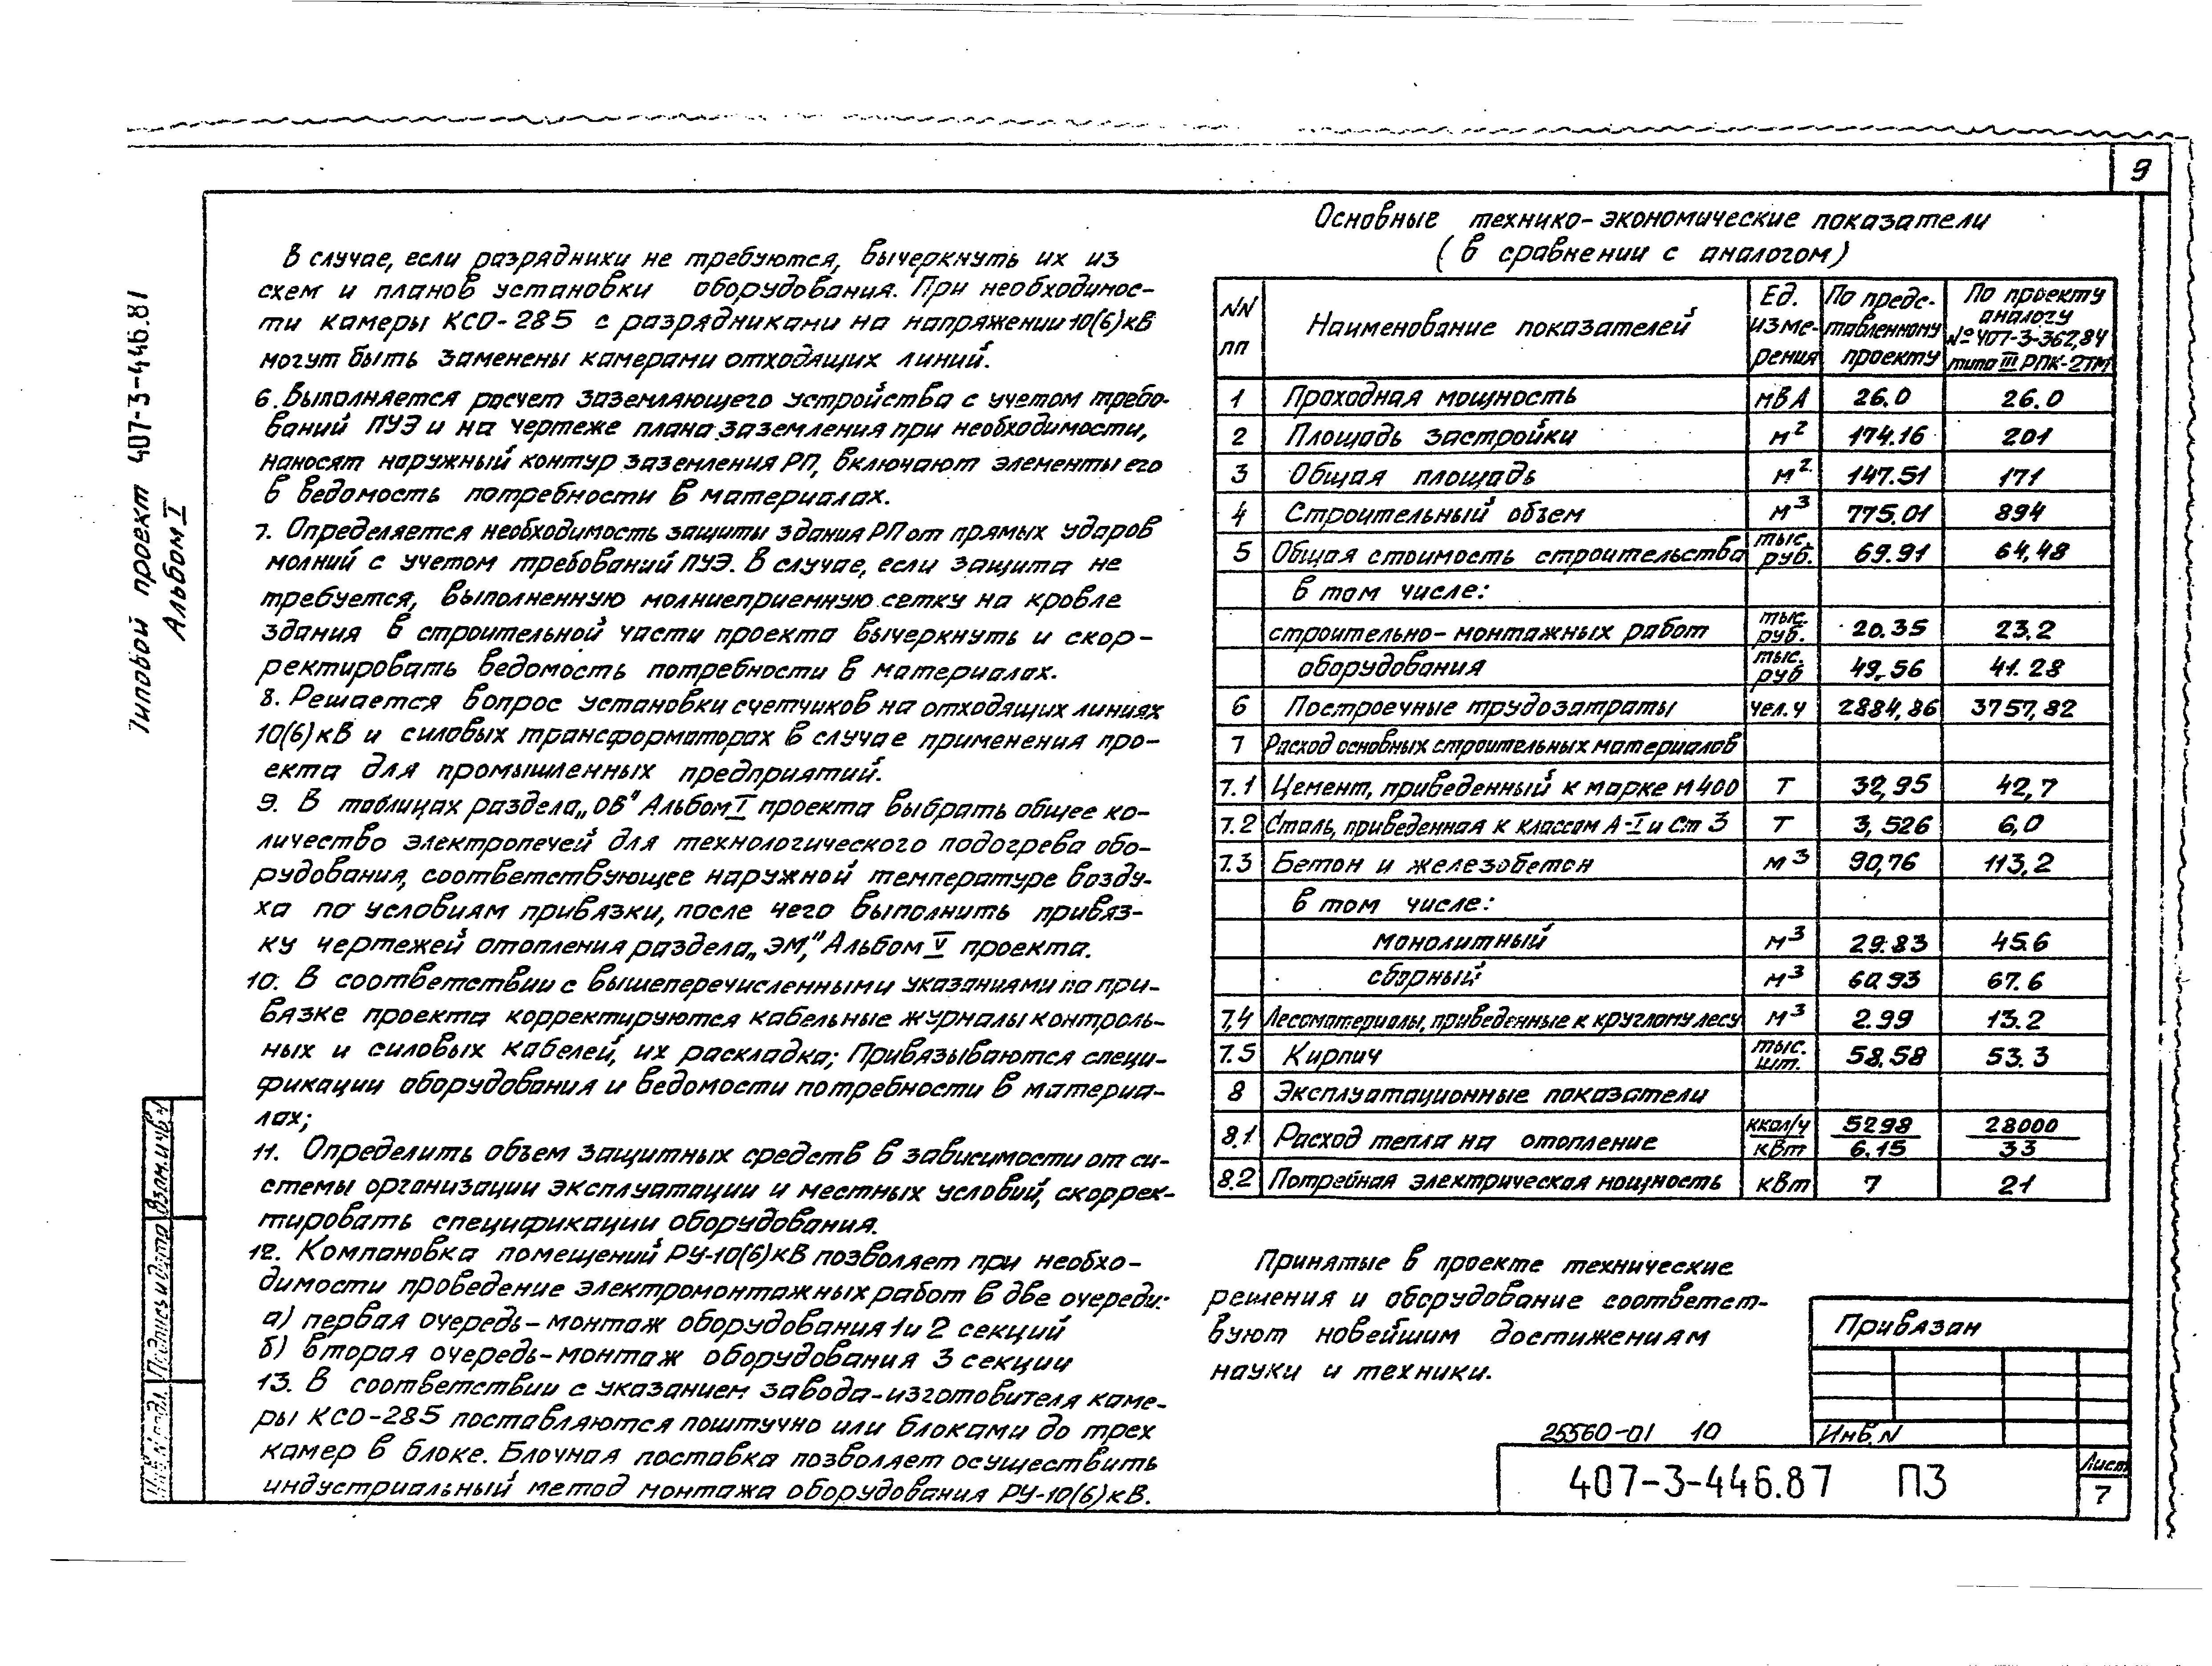 9
Типовой проект 407-3-446.87
Альбом I
В случае, если разрядники не требуются, вычеркнуть их из
схем и планов установки оборудования. При необходимос-
ти камеры КСО-285 с разрядниками на напряжении 10(6)кВ
могут быть заменены камерами отходящих линий.
6. Выполняется расчет заземляющего устройства с учетом требо-
ваний ПУЭ и на чертеже плана заземления при необходимости,
наносят наружный контур заземления РП, включают элементы его
в ведомость потребности в материалах.
7. Определяется необходимость защиты здания РП от прямых ударов
молний с учетом требований ПУЭ. В случае, если защита не
требуется, выполненную молниеприемную сетку на кровле
здания в строительной части проекта вычеркнуть и скор-
ректировать ведомость потребности в материалах.
8. Решается вопрос установки счетчиков на отходящих линиях
10(6)кВ и силовых трансформаторах в случае применения про-
екта для промышленных предприятий.
9. В таблицах раздела „ОВ" Альбом I проекта выбрать общее ко-
личество электропечей для технологического подогрева обо-
рудования, соответствующее наружной температуре возду-
ха по условиям привязки, после чего выполнить привяз-
ку чертежей отопления раздела „ЭМ," Альбом V проекта.
10. В соответствии с вышеперечисленными указаниями по при-
вязке проекта корректируются кабельные журналы контроль-
ных и силовых кабелей, их раскладка; Привязываются специ-
фикации оборудования и ведомости потребности в материа-
лах;
11. Определить объем защитных средств в зависимости от си-
стемы организации эксплуатации и местных условий, скоррек-
тировать спецификации оборудования.
12. Компановка помещений РУ-10(6)кВ позволяет при необхо-
димости проведение электромонтажных работ в две очереди:
а) первая очередь-монтаж оборудования 1 и 2 секций
б) вторая очередь-монтаж оборудования 3 секции
13. В соответствии с указанием завода-изготовителя каме-
ры КСО-285 поставляются поштучно или блоками до трех
камер в блоке. Блочная поставка позволяет осуществить
индустриальный метод монтажа оборудования РУ-10(6)кВ.
Основные технико-экономические показатели
(в сравнении с аналогом)
NN пп Наименование показателей Ед. изме-рения По предс-тавленному проекту По проекту аналогу № 407-3-362,84 типа III РПК-2ТМ
1 Проходная мощность МВА 26.0 26.0
2 Площадь застройки м² 174.16 201
3 Общая площадь м² 147.51 171
4 Строительный объем м³ 775.01 894
5 Общая стоимость строительства тыс. руб. 69.91 64,48
в том числе:
строительно-монтажных работ тыс. руб. 20.35 23.2
оборудования тыс. руб 49.56 41.28
6 Построечные трудозатраты чел.ч 2884,86 3757,82
7 Расход основных строительных материалов
7.1 Цемент, приведенный к марке М400 Т 32,95 42,7
7.2 Сталь, приведенная к классам А-I и Ст 3 Т 3,526 6,0
7.3 Бетон и железобетон м³ 90,76 113,2
в том числе:
монолитный м³ 29.83 45.6
сборный м³ 60.93 67.6
7,4 Лесоматериалы, приведенные к круглому лесу м³ 2.99 13.2
7.5 Кирпич тыс. шт. 58.58 53.3
8 Эксплуатационные показатели
8.1 Расход тепла на отопление ккал/ч квт 5298 6.15 28000 33
8.2 Потребная электрическая мощность квт 7 21
Принятые в проекте технические
решения и оборудование соответст-
вуют новейшим достижениям
науки и техники.
Привязан
Инв. N
25560-01 10
407-3-446.87 ПЗ
Лист
7
Взам.инв.N
Подпись и дата
Инв.N подл.